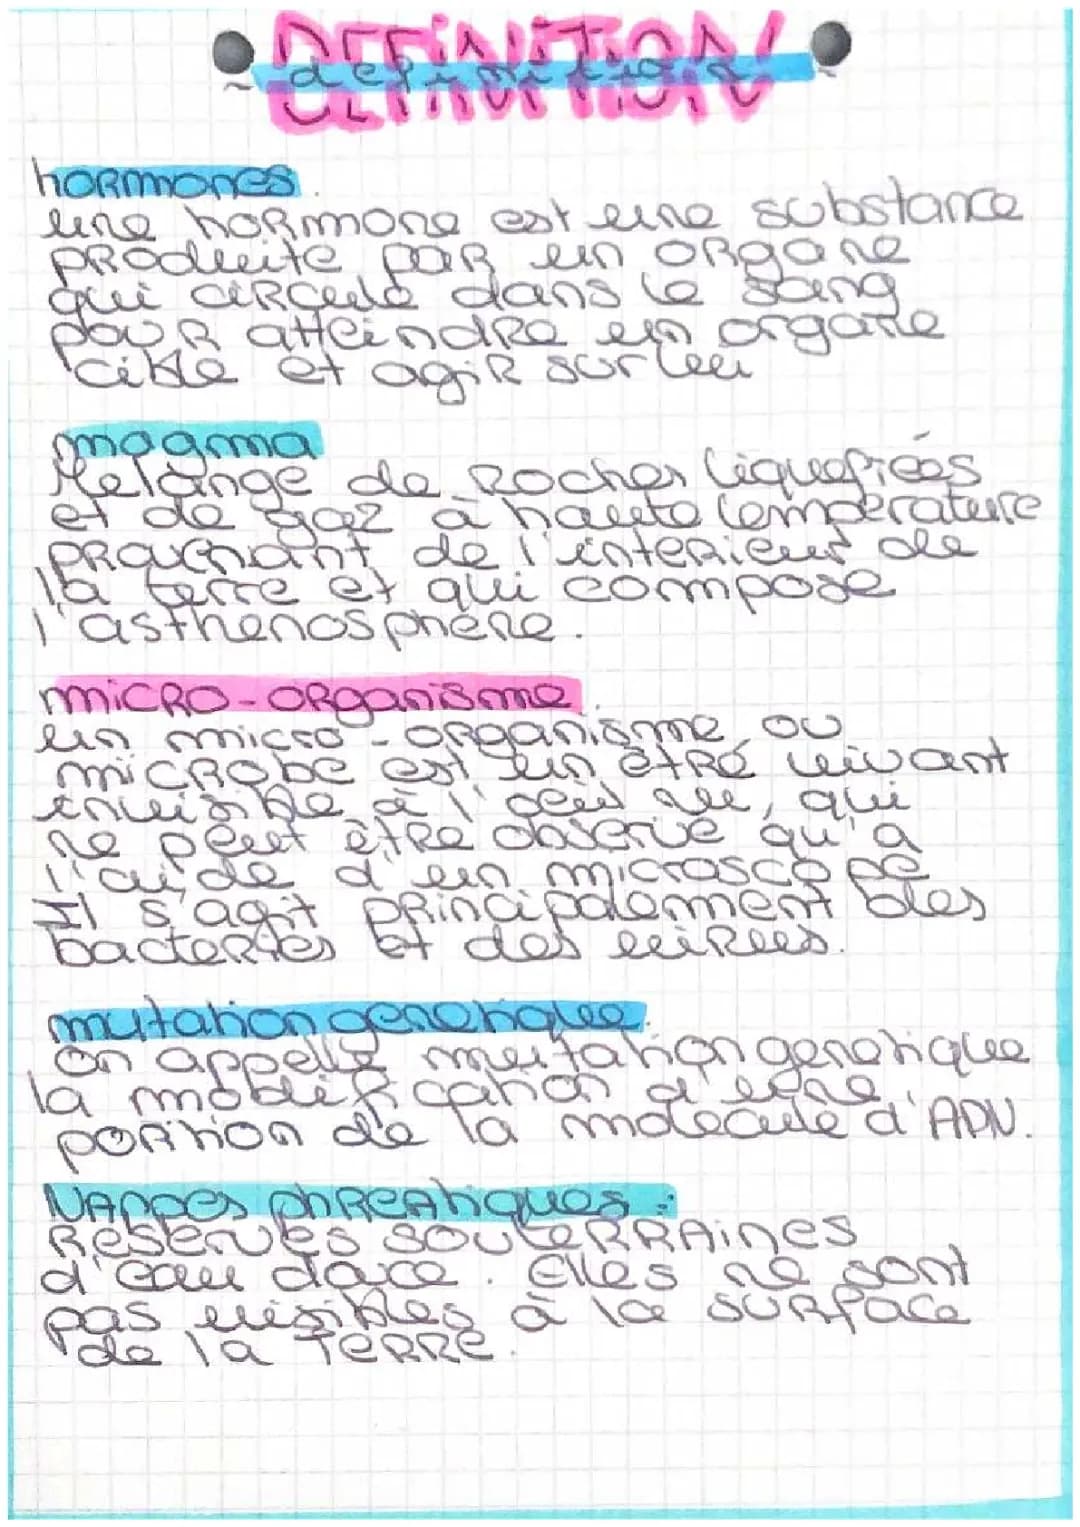 DEFINITION
definition
hormones.
une hormone est une substance
produite par un organe
qui circule dans le sang
pour atteindre un organe
cible et agir sur lui
magma
Melange de Roches liquefiées
et de gaz à haute température
provenant de l'interieur de
la terre et qui compose
l'asthenosphère.
micro-organisme.
un micro-organisme, ou
microbe est un être vivant
invisible à l'oeil nu, qui
ne peut être observé qu'à
l'aide d'un microscope
Il s'agit principalement des
bacteries et des virus.
mutation genetique.
on appelle mutation genetique
la modification d'une
portion de la molecule d'ADN.
Nappes phreatiques :
Reserves souterraines
d'eau douce. Elles ne sont
pas visibles à la surface
de la Terre.